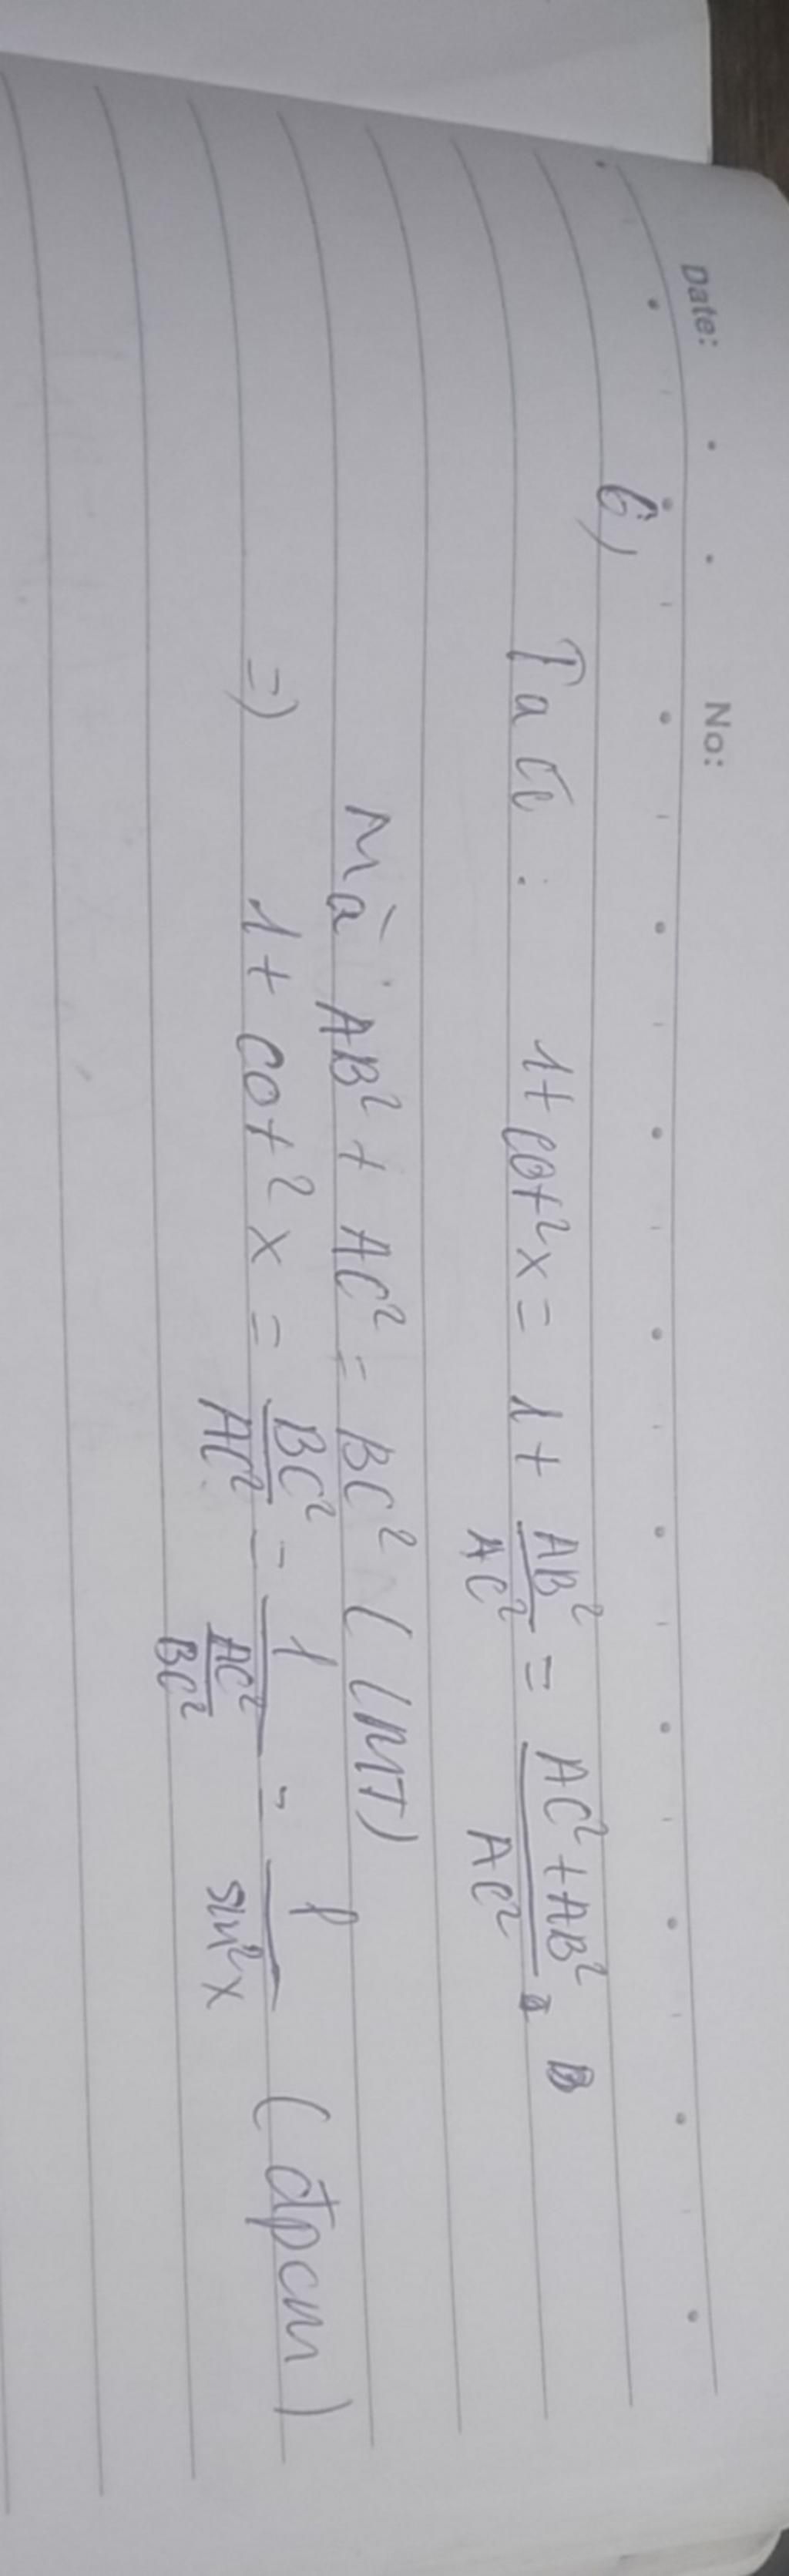 Date: No:
b)
Ta có : 1 + cot² x = 1 + AB²/AC² = (AC² + AB²)/AC²
Mà AB² + AC² = BC² ( CMT)
=) 1 + cot² x = BC²/AC² = 1/(AC²/BC²) = 1/sin² x (đpcm)